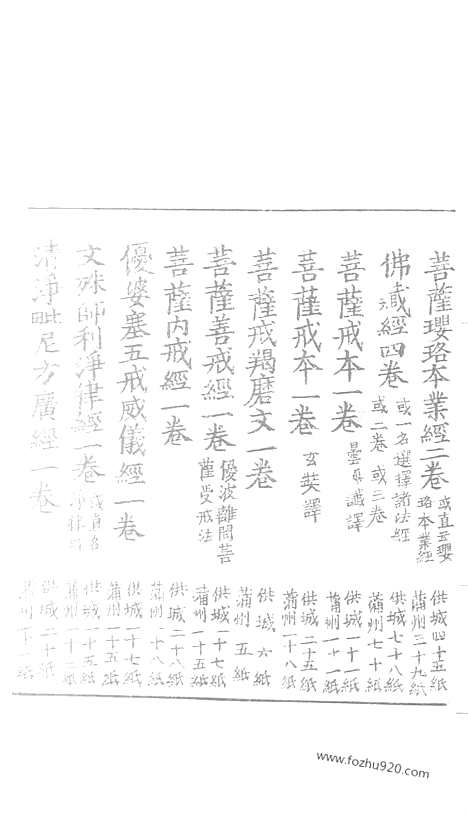 菩薩瓔珞本業經二卷 或直云瓔珞本業經 供城四十五紙 蒲州三十九紙
佛藏經四卷 或一名選擇諸法經 或二卷 或三卷 供城七十八紙 蒲州七十紙
菩薩戒本一卷 曇無讖譯 供城一十一紙 蒲州一十一紙
菩薩戒本一卷 玄奘譯 供城二十五紙 蒲州一十八紙
菩薩戒羯磨文一卷 供城六紙 蒲州五紙
菩薩善戒經一卷 優波離問菩薩受戒法 供城二十七紙 蒲州一十五紙
菩薩內戒經一卷 供城二十八紙 蒲州一十八紙
優婆塞五戒威儀經一卷 供城一十七紙 蒲州一十五紙
文殊師利淨律經一卷 供城一十五紙 蒲州一十二紙
清淨毗尼方廣經一卷 供城二十紙 蒲州二十一紙
www.fozhu920.com